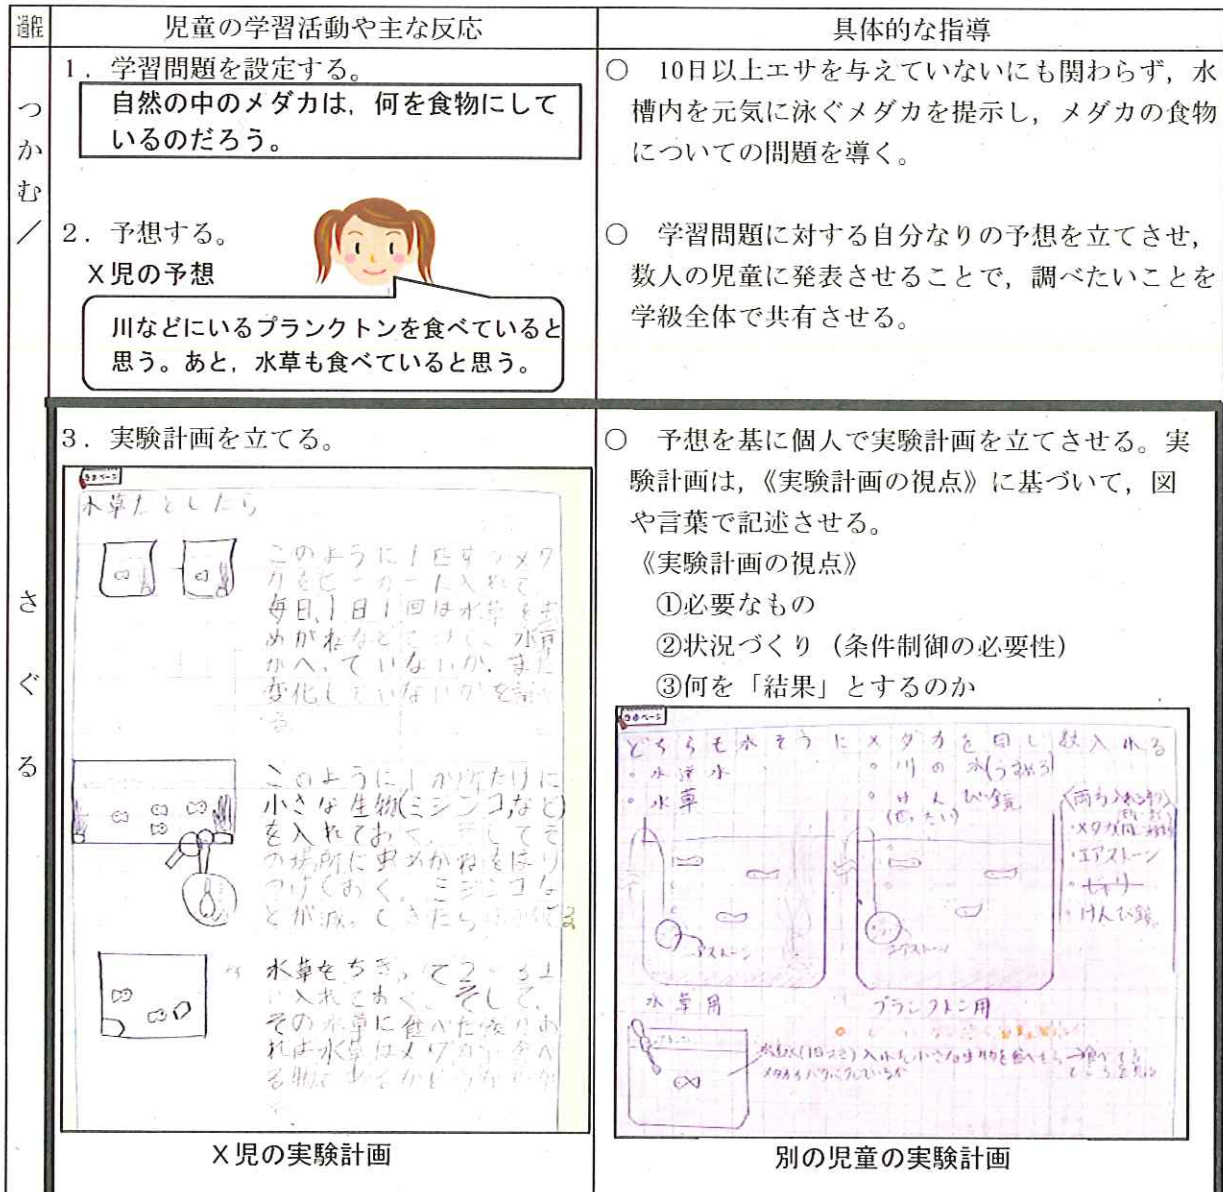 過程
児童の学習活動や主な反応
具体的な指導
つかむ/
1．学習問題を設定する。
自然の中のメダカは，何を食物にして
いるのだろう。
2．予想する。
X児の予想
川などにいるプランクトンを食べていると
思う。あと，水草も食べていると思う。
○　10日以上エサを与えていないにも関わらず，水
槽内を元気に泳ぐメダカを提示し，メダカの食物
についての問題を導く。
○　学習問題に対する自分なりの予想を立てさせ，
数人の児童に発表させることで，調べたいことを
学級全体で共有させる。
さぐる
3．実験計画を立てる。
水草だとしたら
このように1匹ずつメダ
カをビーカーに入れて、
毎日、1日1回は水草を虫
めがねなどで、水草
がへっていないか、また
変化していないかを調べ
る
このように1か所だけに
小さな生物(ミジンコなど)
を入れておく、そしてそ
の場所に虫めがねをはり
つけておく、ミジンコな
どが減ってきたら
水草をちぎって2〜3
入れておく、そして、
その水草に食べた後りあ
れば水草はメダカが食べ
る物であるかどうか
X児の実験計画
○　予想を基に個人で実験計画を立てさせる。実
験計画は，《実験計画の視点》に基づいて，図
や言葉で記述させる。
《実験計画の視点》
①必要なもの
②状況づくり（条件制御の必要性）
③何を「結果」とするのか
どちらも水そうにメダカを同じ数入れる
・水道水
・川の水
・水草
・けんび鏡
(ぜったい)
・エアストーン
・けんび鏡
エアストーン
エアストーン
水草用
プランクトン用
別の児童の実験計画